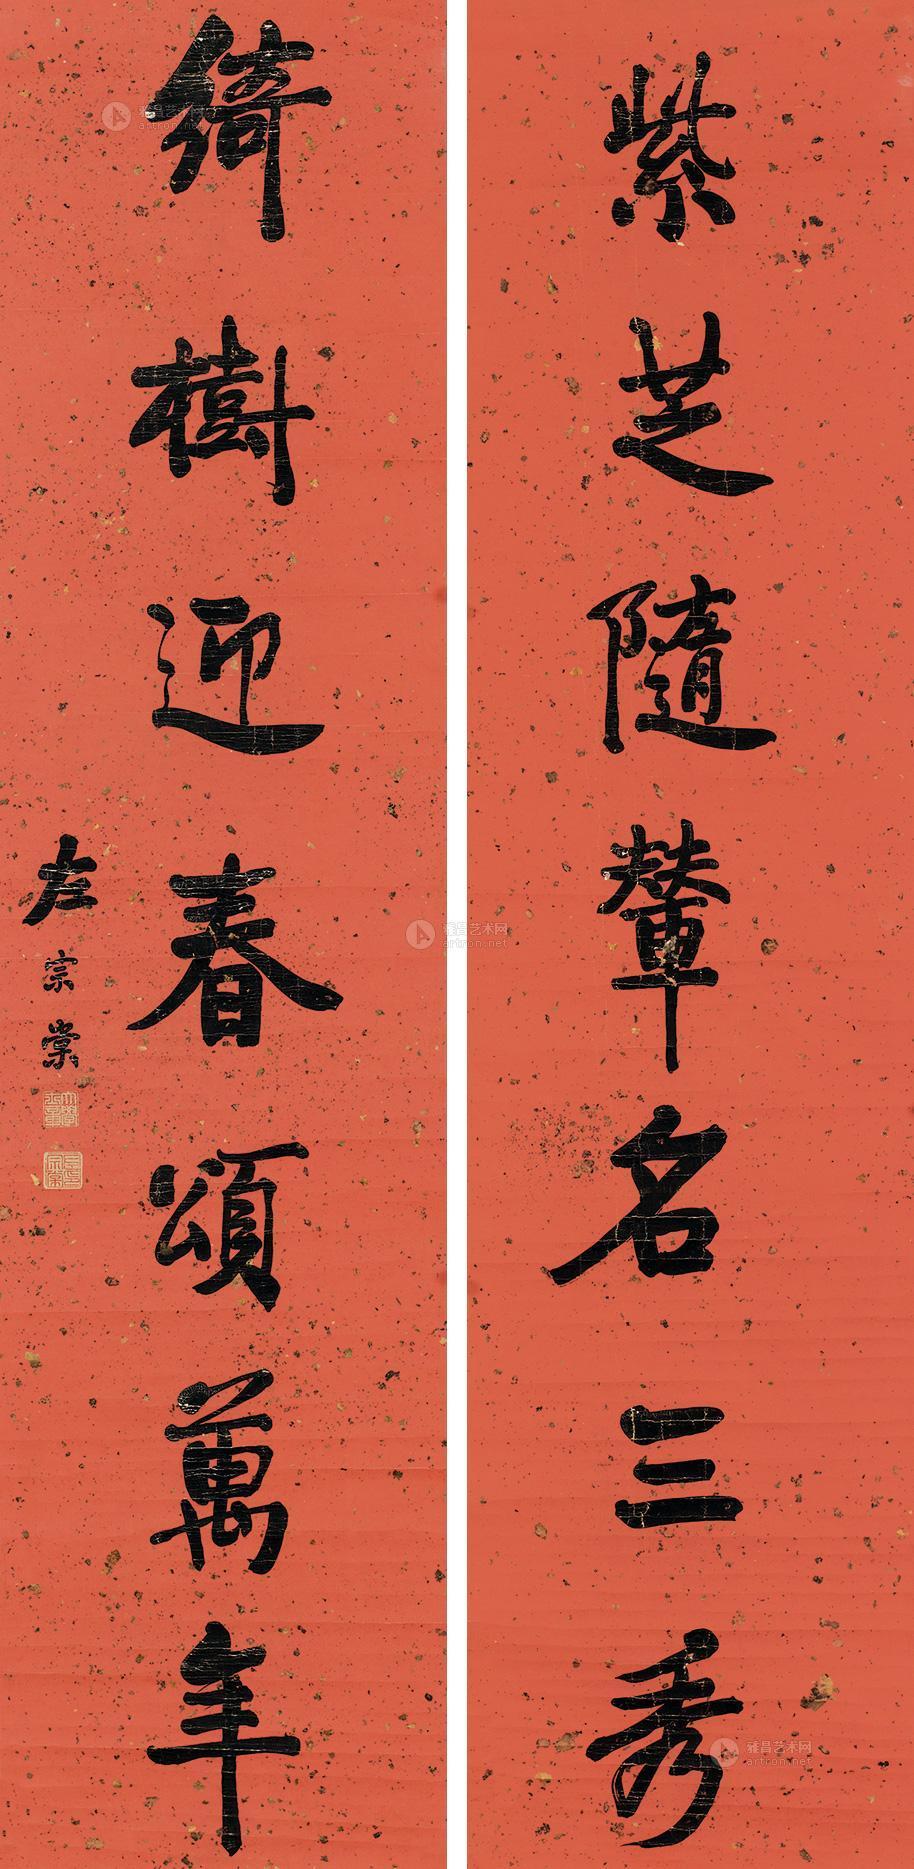 紫芝隨輦名三秀
綺樹迎春頌萬年
左宗棠
雅昌艺术网
artron.net
雅昌艺术网
artron.net
雅昌艺术网
artron.net